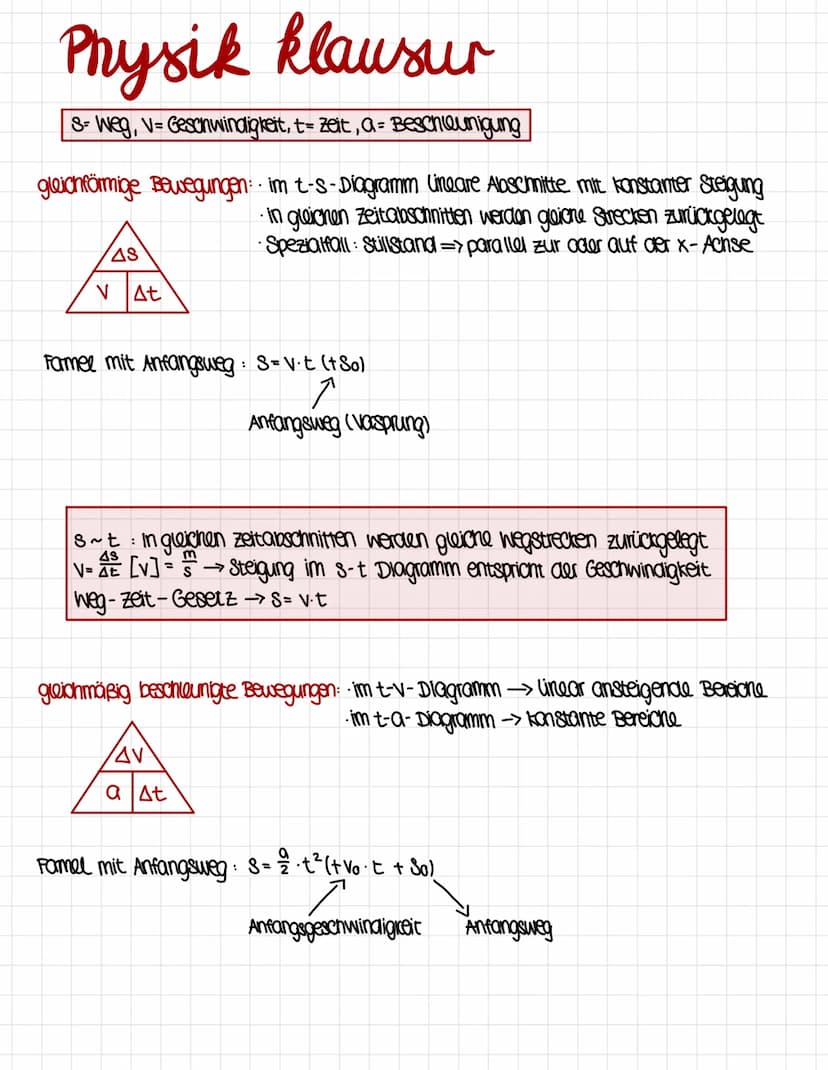 Physik Klausur
S= Weg, V= Geschwindigkeit, t= Zeit, a= Beschleunigung
gleichförmige Bewegungen: · im t-s-Diagramm lineare Abschnitte mit konstanter Steigung
· in gleichen Zeitabschnitten werden gleiche Strecken zurückgelegt
· Spezialfall: Stillstand => parallel zur oder auf der x-Achse
Δs
V Δt
Formel mit Anfangsweg: S= v·t (+S₀)
Anfangsweg (Vorsprung)
S~t : in gleichen Zeitabschnitten werden gleiche Wegstrecken zurückgelegt
V= Δs/Δt [V]= m/s → Steigung im s-t Diagramm entspricht der Geschwindigkeit
Weg-Zeit-Gesetz → S= v·t
gleichmäßig beschleunigte Bewegungen: · im t-v-Diagramm → linear ansteigende Bereiche
· im t-a-Diagramm → konstante Bereiche
ΔV
a Δt
Formel mit Anfangsweg: S= a/2 · t² (+V₀ · t + S₀)
Anfangsgeschwindigkeit Anfangsweg